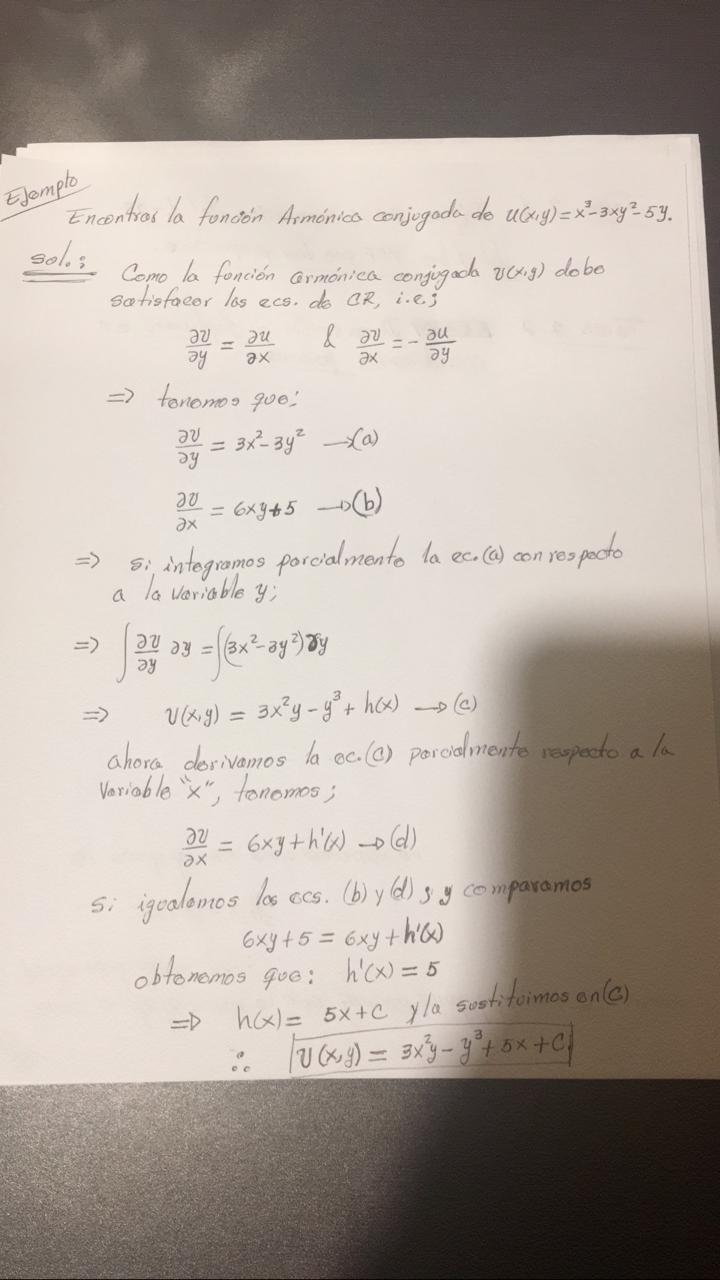 Ejemplo
Encontrar la función Armónica conjugada de u(x,y)=x³-3xy²-5y.
sol.: Como la función armónica conjugada v(x,y) debe
satisfacer las ecs. de CR, i.e;
∂v/∂y = ∂u/∂x & ∂v/∂x = -∂u/∂y
=> tenemos que:
∂v/∂y = 3x²-3y² →(a)
∂v/∂x = 6xy+5 →(b)
=> si integramos parcialmente la ec.(a) con respecto
a la variable y;
=> ∫ ∂v/∂y ∂y = ∫(3x²-3y²)∂y
=> v(x,y) = 3x²y - y³ + h(x) →(c)
ahora derivamos la ec.(c) parcialmente respecto a la
variable "x", tenemos;
∂v/∂x = 6xy + h'(x) →(d)
si igualamos las ecs. (b) y (d) y comparamos
6xy+5 = 6xy + h'(x)
obtenemos que: h'(x) = 5
=> h(x) = 5x+C y la sustituimos en (c)
∴ v(x,y) = 3x²y - y³ + 5x + C